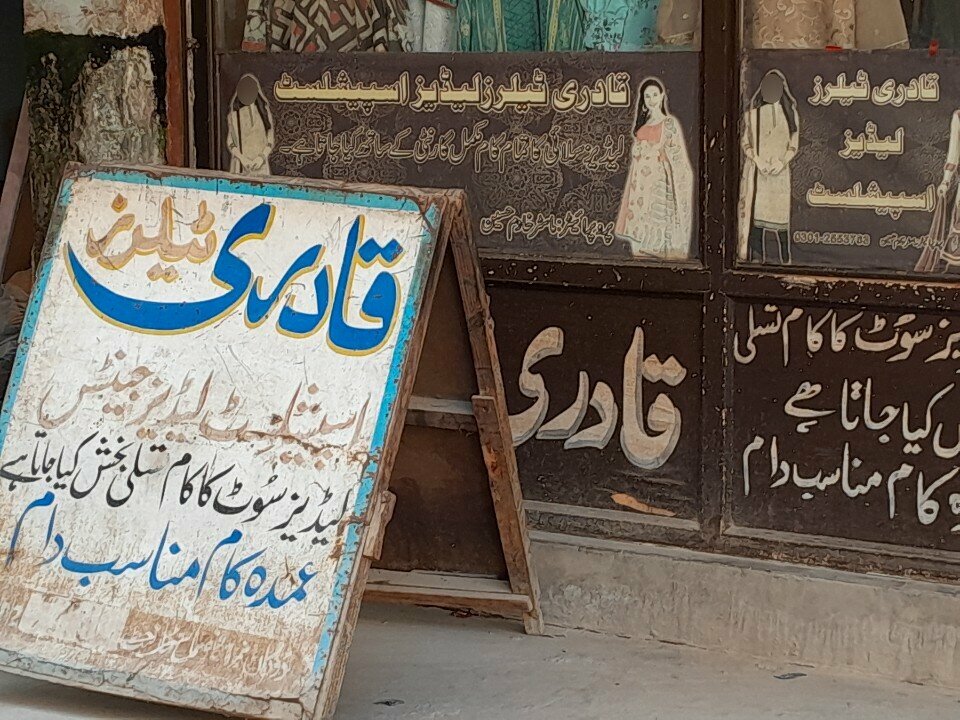 قادری ٹیلرز لیڈیز اسپیشلسٹ
لیڈیز سلائی کا تمام کام مکمل گارنٹی کے ساتھ کیا جاتا ہے۔
پروپرائیٹر: ماسٹر خادم حسین
قادری ٹیلرز
لیڈیز
اسپیشلسٹ
0301-2663763
قادری
ٹیلرز
اسپشلسٹ لیڈیز جینٹس
لیڈیز سوٹ کا کام تسلی بخش کیا جاتا ہے
عمدہ کام مناسب دام
قادری
سوٹ کا کام تسلی
کیا جاتا ھے
کام مناسب دام